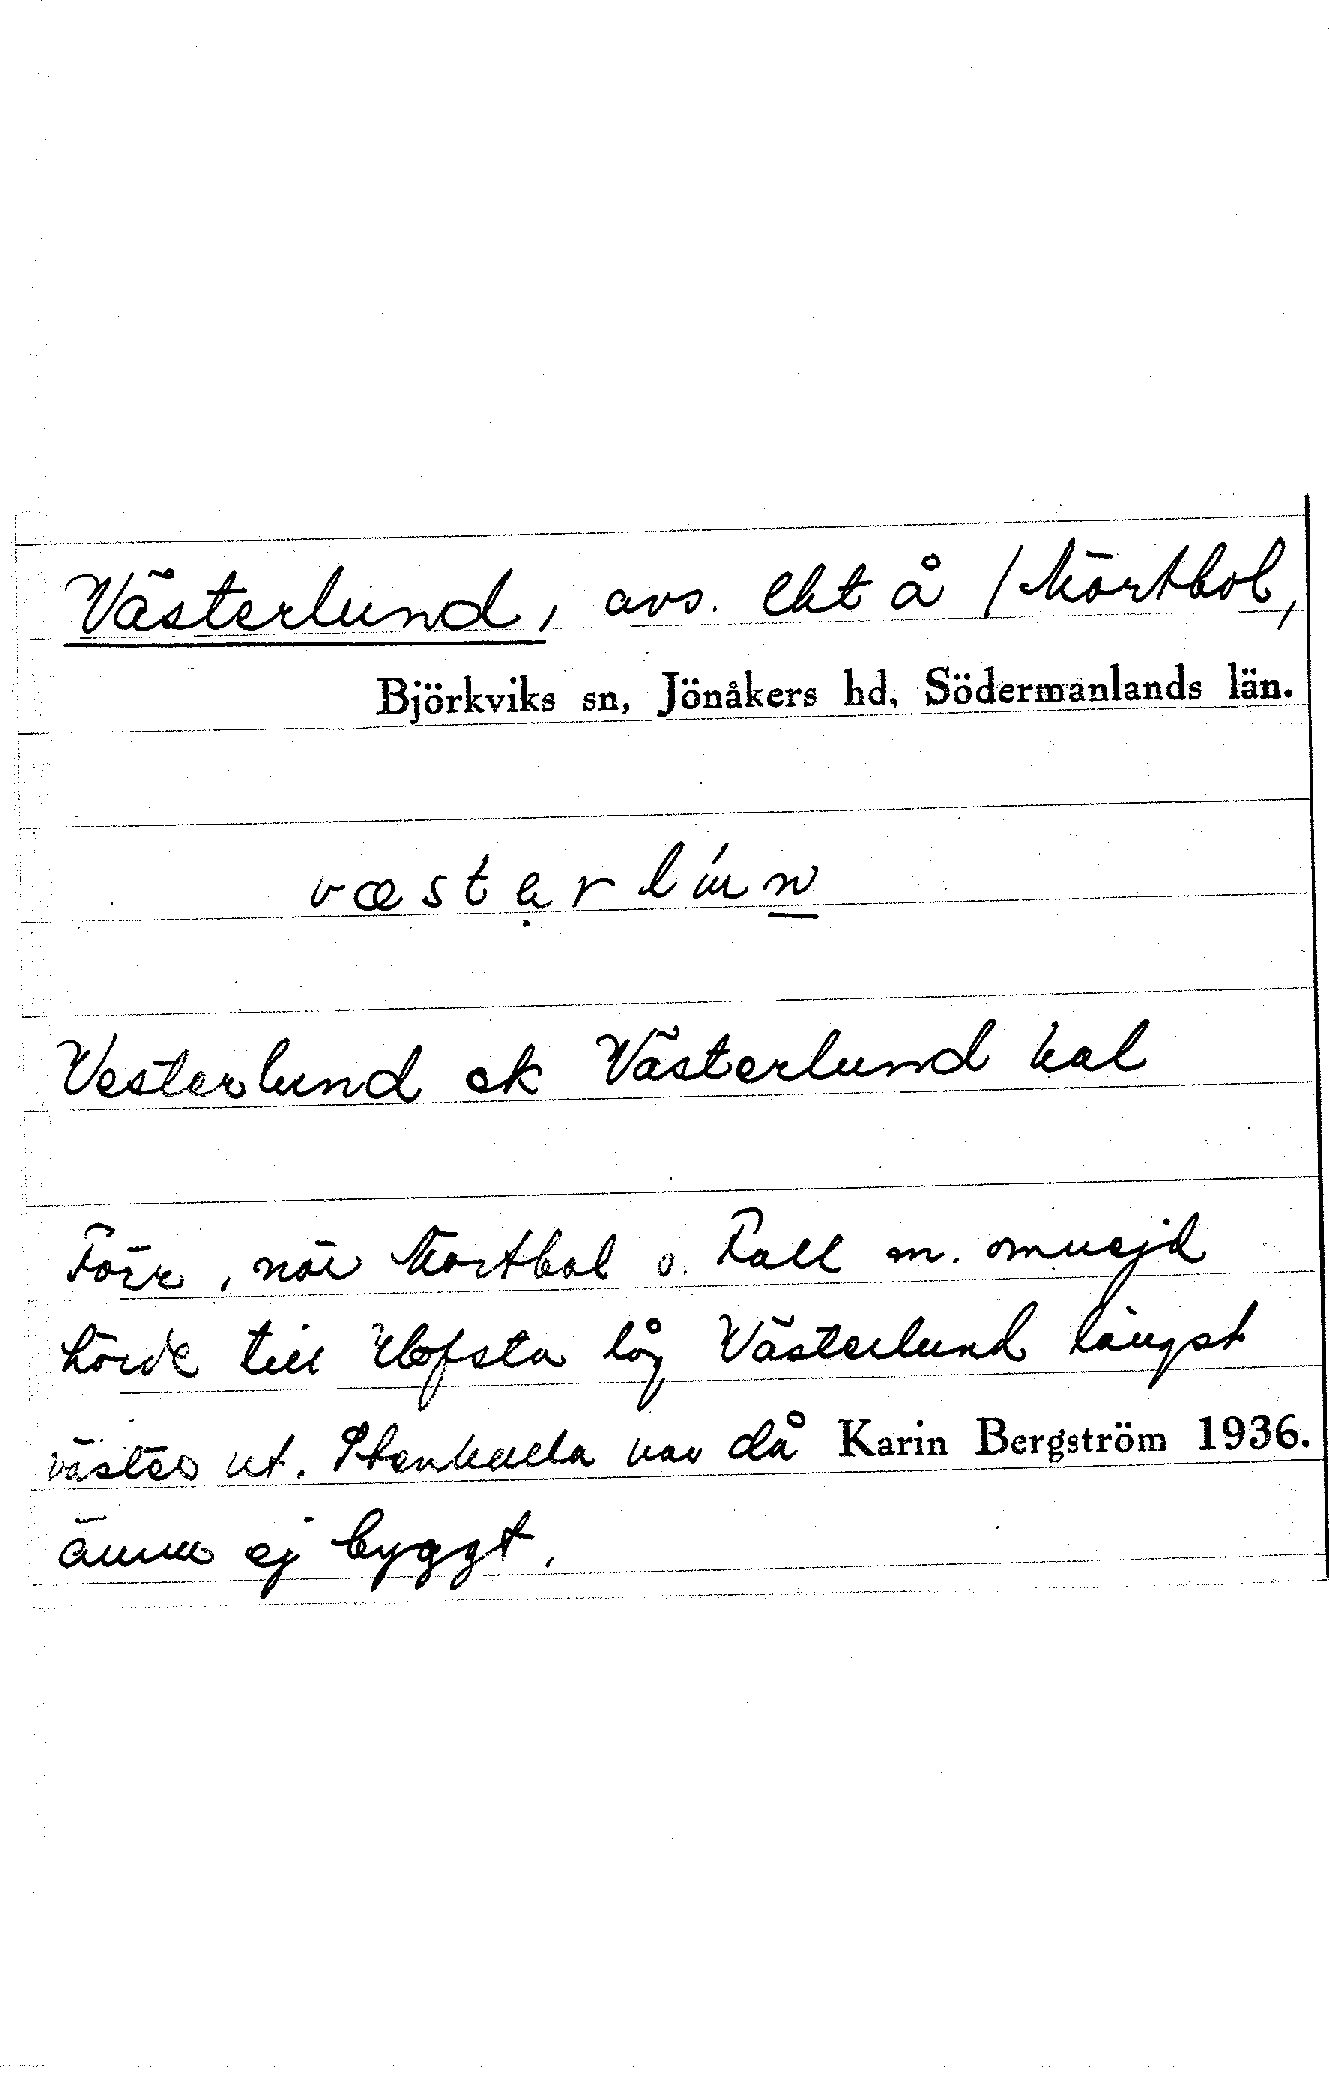 Västerlund, avs. lht å Mörtbol,
Björkviks sn, Jönåkers hd, Södermanlands län.
væstẹrlún̲
Vesterlund ek Västerlund hal
Förr, när Mörtbol o. Fall m. omnejd
hörde till Hofsta låg Västerlund längst
väster ut. Stenkulla var då Karin Bergström 1936.
ännu ej byggt.